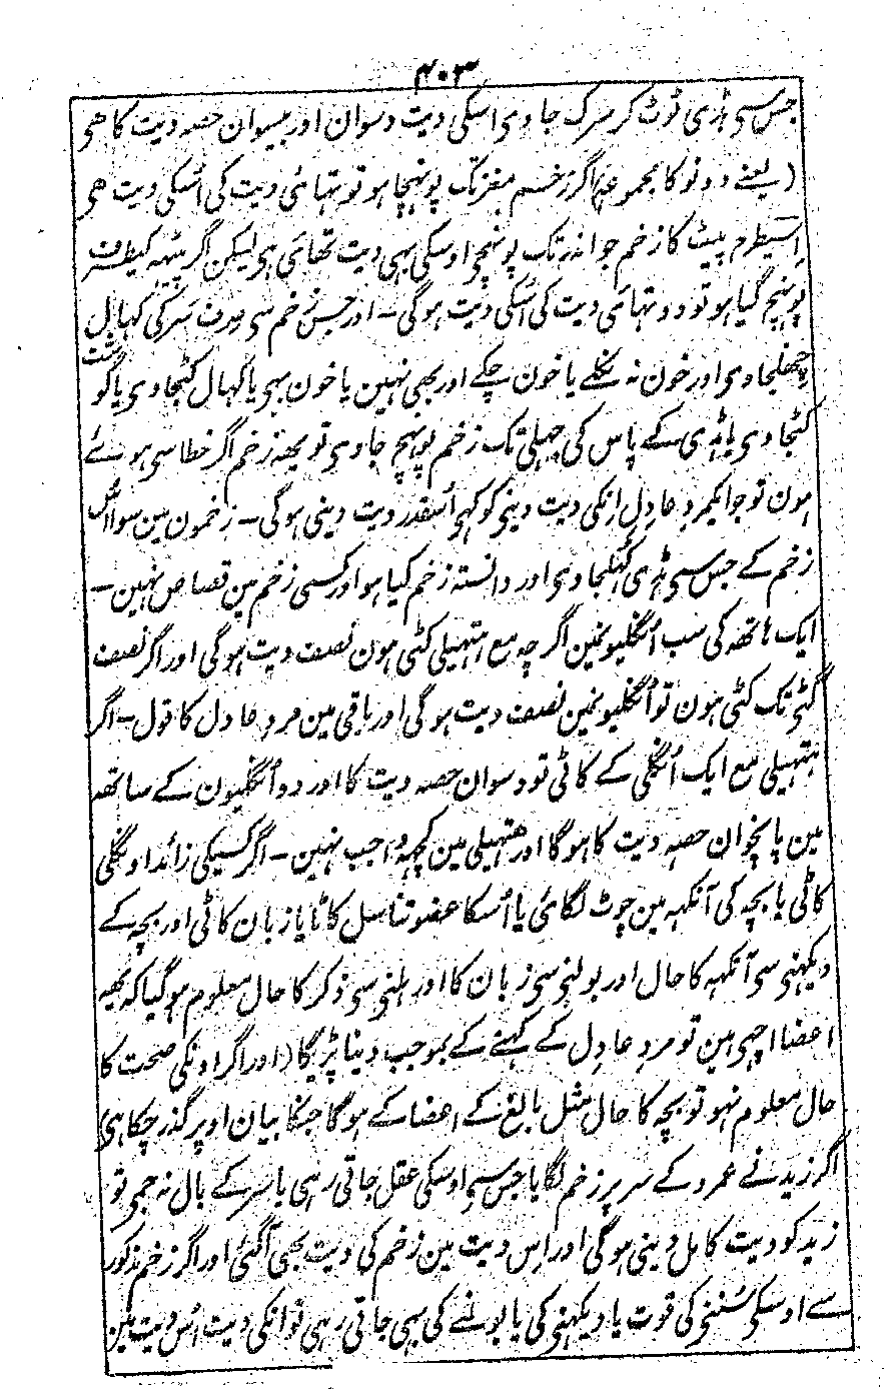 ۴۰۳
جس سی ہڈی ٹوٹ کر سرک جاوی اسکی دیت دسوان اور بیسوان حصہ دیت کا ھی
(یعنے دونو کا مجموعہ) اگر زخم مغز تک پونہچا ہو تو تہائی دیت کی اُسکی دیت ھی
اسیطرح پیٹ کا زخم جو اندر تک پونہچی اوسکی بہی دیت تہائی ہی لیکن اگر پیٹہہ کیطرف
پونہچ گیا ہو تو دو تہائی دیت کی اُسکی دیت ہوگی ـ اور جس زخم سی صرف سَر کی کہال
چھلجاوی اور خون نہ نکلے یا خون چمکے اور بھی نہین یا خون بہی یا کہال کٹجاوی یا گوشت
کٹجاوی یا ہڈی کے پاس کی جہلی تک زخم پونہچ جاوی تو یہہ زخم اگر خطا سی ہوئے
ہون تو جو ایکمرد عادِل اِنکی دیت دینی کو کہی اُسقدر دیت دینی ہوگی ـ زخمون مین سوا اُس
زخم کے جس سی ہڈی کُہلجاوی اور دانستہ زخم کیا ہو اور کسی زخم مین قصاص نہین ـ
ایک ہاتھہ کی سب اُنگلیونمین اگرچہ مع ہتہیلی کٹی ہون نصف دیت ہوگی اور اگر نصف
گٹی تک کٹی ہون تو اُنگلیونمین نصف دیت ہوگی اور باقی مین مرد عادل کا قول ـ اگر
ہتہیلی مع ایک اُنگلی کے کاٹی تو دسوان حصہ دیت کا اور دو اُنگلیون کے ساتھہ
مین پانچوان حصہ دیت کا ہوگا اور ہتہیلی مین کچہہ واجب نہین ـ اگر کسیکی زائد اونگلی
کاٹی یا بچہ کی آنکہہ مین چوٹ لگائی یا اُسکا عضو تناسل کاٹا یا زبان کاٹی اور بچہ کے
دیکہنی سی آنکہہ کا حال اور بولنی سی زبان کا اور ہلنی سی ذکر کا حال معلوم ہوگیا کہ یہہ
اعضا اچہی ہین تو مرد عادِل کے کہنے کے بموجب دینا پڑیگا (اور اگر اونکی صحت کا
حال معلوم نہو تو بچہ کا حال مثل بالغ کے اعضا کے ہوگا جنکا بیان اوپر گذر چکا ہی)
اگر زید نے عمرد کے سر پر زخم لگایا جس سی اوسکی عقل جاتی رہی یا سر کے بال نہ جمی تو
زید کو دیت کامل دینی ہوگی اور اِس دیت مین زخم کی دیت بھی آگئی اور اگر زخم مذکور
سے اوسکی سُننی کی قوت یا دیکہنی کی یا بولنے کی بہی جاتی رہی تو انکی دیت اُس دیت مین